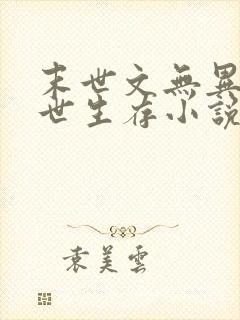 末世文無異
世生存小說
袁美雲